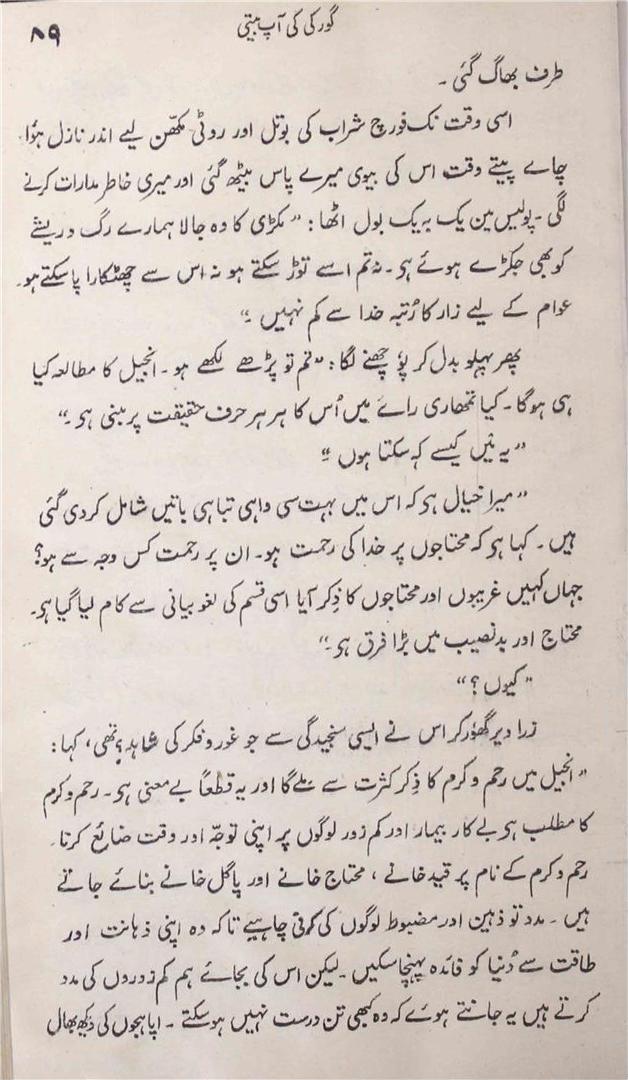 گورکی کی آپ بیتی
۸۹
طرف بھاگ گئی ۔
اسی وقت نک فورچ شراب کی بوتل اور روٹی مکھّن لیے اندر نازل ہؤا.
چاے پیتے وقت اس کی بیوی میرے پاس بیٹھ گئی اور میری خاطر مدارات کرنے
لگی ۔ پولیس مین یک بہ یک بول اٹھا : ” مکڑی کا وہ جالا ہمارے رگ و ریشے
کو بھی جکڑے ہوئے ہی ۔ نہ تم اسے توڑ سکتے ہو نہ اس سے چھٹکارا پا سکتے ہو۔
عوام کے لیے زار کا رُتبہ خدا سے کم نہیں ۔“
پھر پہلو بدل کر پوٗ چھنے لگا : ”تم تو پڑھے لکھے ہو ۔ انجیل کا مطالعہ کیا
ہی ہوگا ۔ کیا تمھاری راے میں اُس کا ہر ہر حرف حقیقت پر مبنی ہی ۔“
” یہ مَیں کیسے کہ سکتا ہوں ۔“
” میرا خیال ہی کہ اس میں بہت سی واہی تباہی باتیں شامل کر دی گئی
ہیں ۔ کہا ہی کہ محتاجوں پر خدا کی رحمت ہو ۔ ان پر رحمت کس وجہ سے ہو؟
جہاں کہیں غریبوں اور محتاجوں کا ذِکر آیا اسی قسم کی لغو بیانی سے کام لیا گیا ہی۔
محتاج اور بدنصیب میں بڑا فرق ہی ۔“
” کیوں ؟ “
زرا دیر گھوٗر کر اس نے ایسی سنجیدگی سے جو غور و فکر کی شاہد تھی، کہا :
” انجیل میں رحم و کرم کا ذِکر کثرت سے ملے گا اور یہ قطعاً بے معنی ہی ۔ رحم و کرم
کا مطلب ہی بے کار بیمار اور کم زور لوگوں پر اپنی توجّہ اور وقت ضائع کرنا.
رحم و کرم کے نام پر قید خانے ، محتاج خانے اور پاگل خانے بنائے جاتے
ہیں ۔ مدد تو ذہین اور مضبوط لوگوں کی کرنی چاہیے تاکہ وہ اپنی ذہانت اور
طاقت سے دُنیا کو فائدہ پہنچا سکیں ۔ لیکن اس کی بجائے ہم کم زوروں کی مدد
کرتے ہیں یہ جانتے ہوئے کہ وہ کبھی تن درست نہیں ہو سکتے ۔ اپاہجوں کی دیکھ بھال